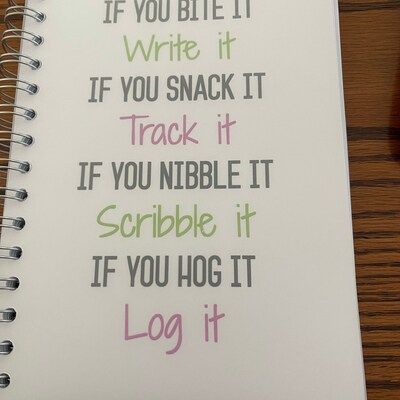 IF YOU BITE IT
Write it
IF YOU SNACK IT
Track it
IF YOU NIBBLE IT
Scribble it
IF YOU HOG IT
Log it